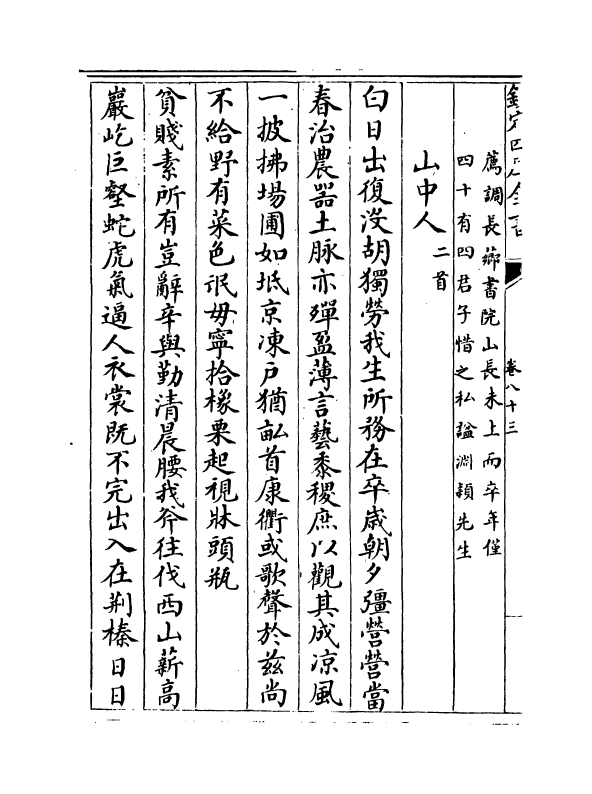 欽定四庫全書
卷八十三
薦調長薌書院山長未上而卒年僅
四十有四君子惜之私諡淵穎先生
山中人二首
白日出復没胡獨勞我生所務在卒歲朝夕彊營營當
春治農器土脉亦殫盈薄言藝黍稷庶以觀其成凉風
一披拂場圃如坻京凍户猶畝首康衢或歌聲於兹尚
不給野有菜色氓毋寧拾橡栗起視牀頭瓶
貧賤素所有豈辭辛與勤清晨腰我斧往伐西山薪高
巖屹巨壑蛇虎氣逼人衣裳既不完出入在荆榛日日